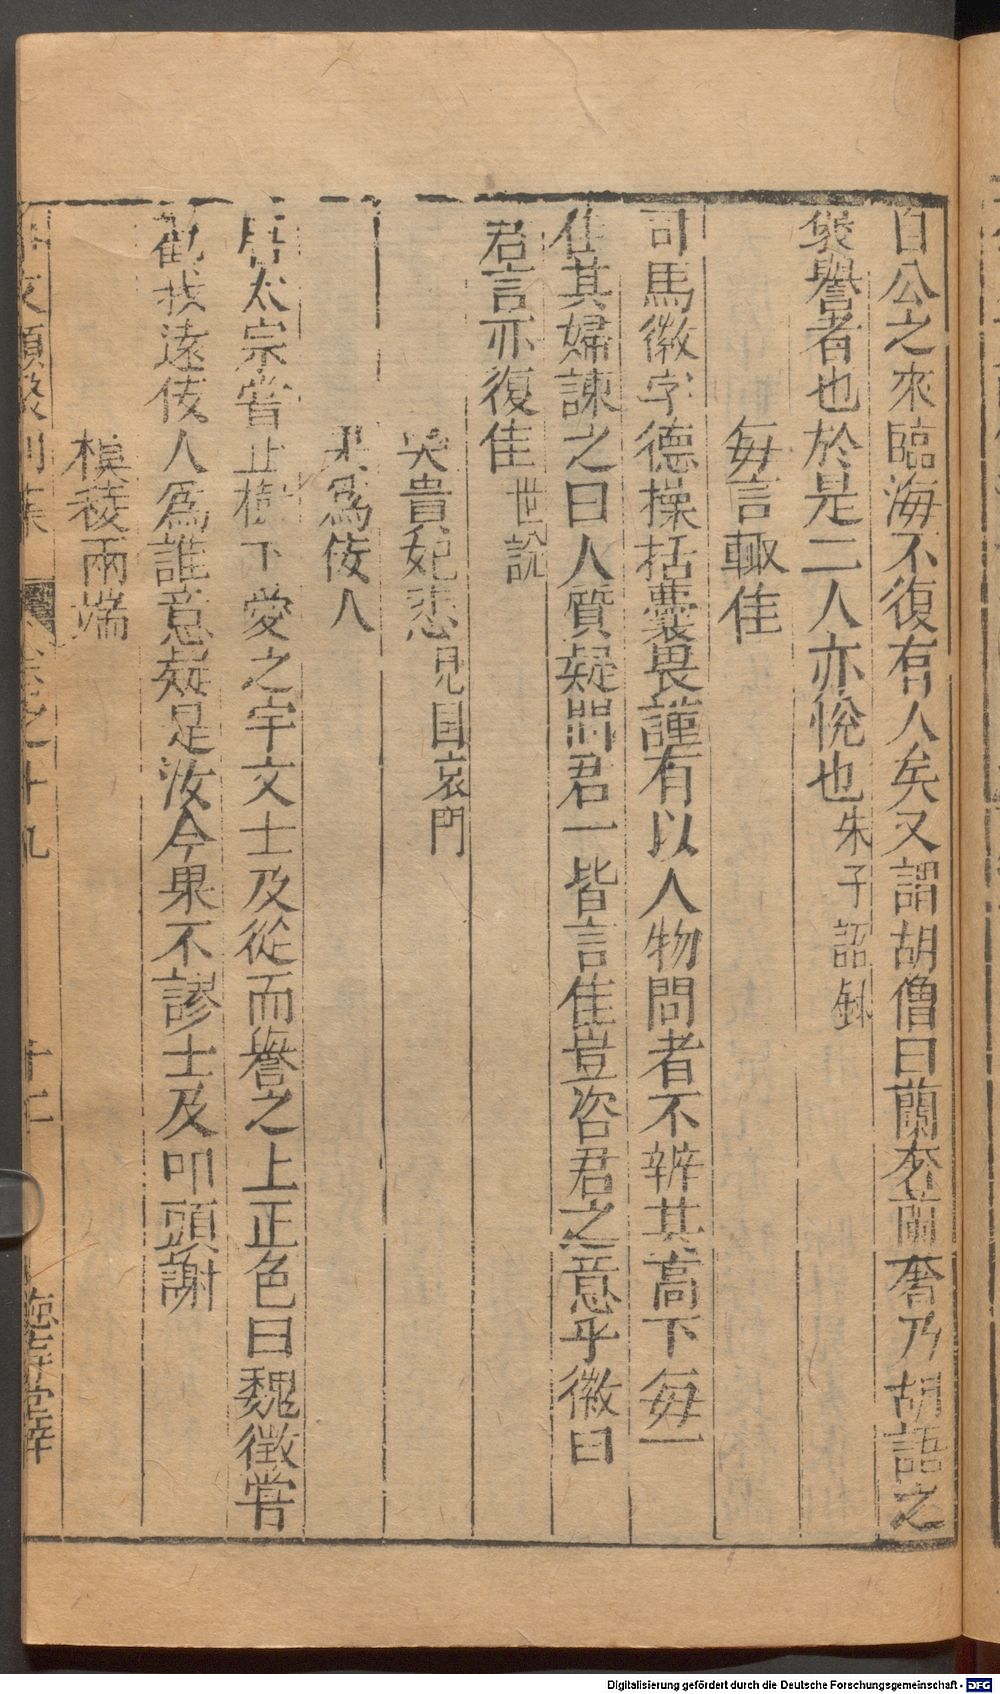 自公之來臨海不復有人矣又謂胡僧曰蘭奢蘭奢乃胡語之
褒譽者也於是二人亦悅也朱子語錄
每言輒佳
司馬徽字德操括囊畏謹有以人物問者不辨其高下每一
佳其婦諫之曰人質疑問君一皆言佳豈咨君之意乎徽曰
君言亦復佳世說
哭貴妃悲見国哀門
果為佞人
唐太宗嘗止樹下愛之宇文士及從而譽之上正色曰魏徵嘗
勸我遠佞人為誰意疑是汝今果不謬士及叩頭謝
模稜兩端
卷之十九 十二
Digitalisierung gefördert durch die Deutsche Forschungsgemeinschaft - DFG